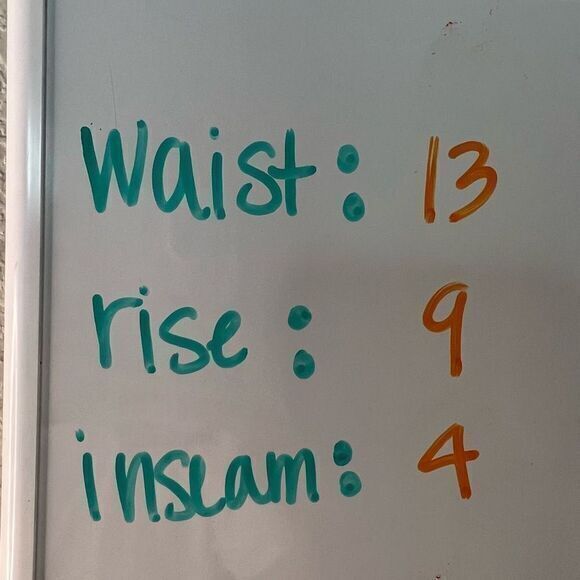 Waist: 13
rise: 9
inseam: 4